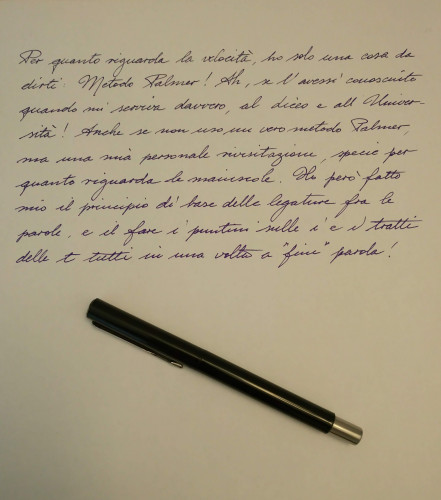 Per quanto riguarda la velocità, ho solo una cosa da
dirti: Metodo Palmer! Ah, se l'avessi conosciuto
quando mi serviva davvero, al liceo e all'Univer-
sità! Anche se non uso un vero metodo Palmer,
ma una mia personale rivisitazione, specie per
quanto riguarda le maiuscole. Ho però fatto
mio il principio di base delle legature fra le
parole, e il fare i puntini sulle i e i tratti
delle t tutti in una volta a "fine" parola!